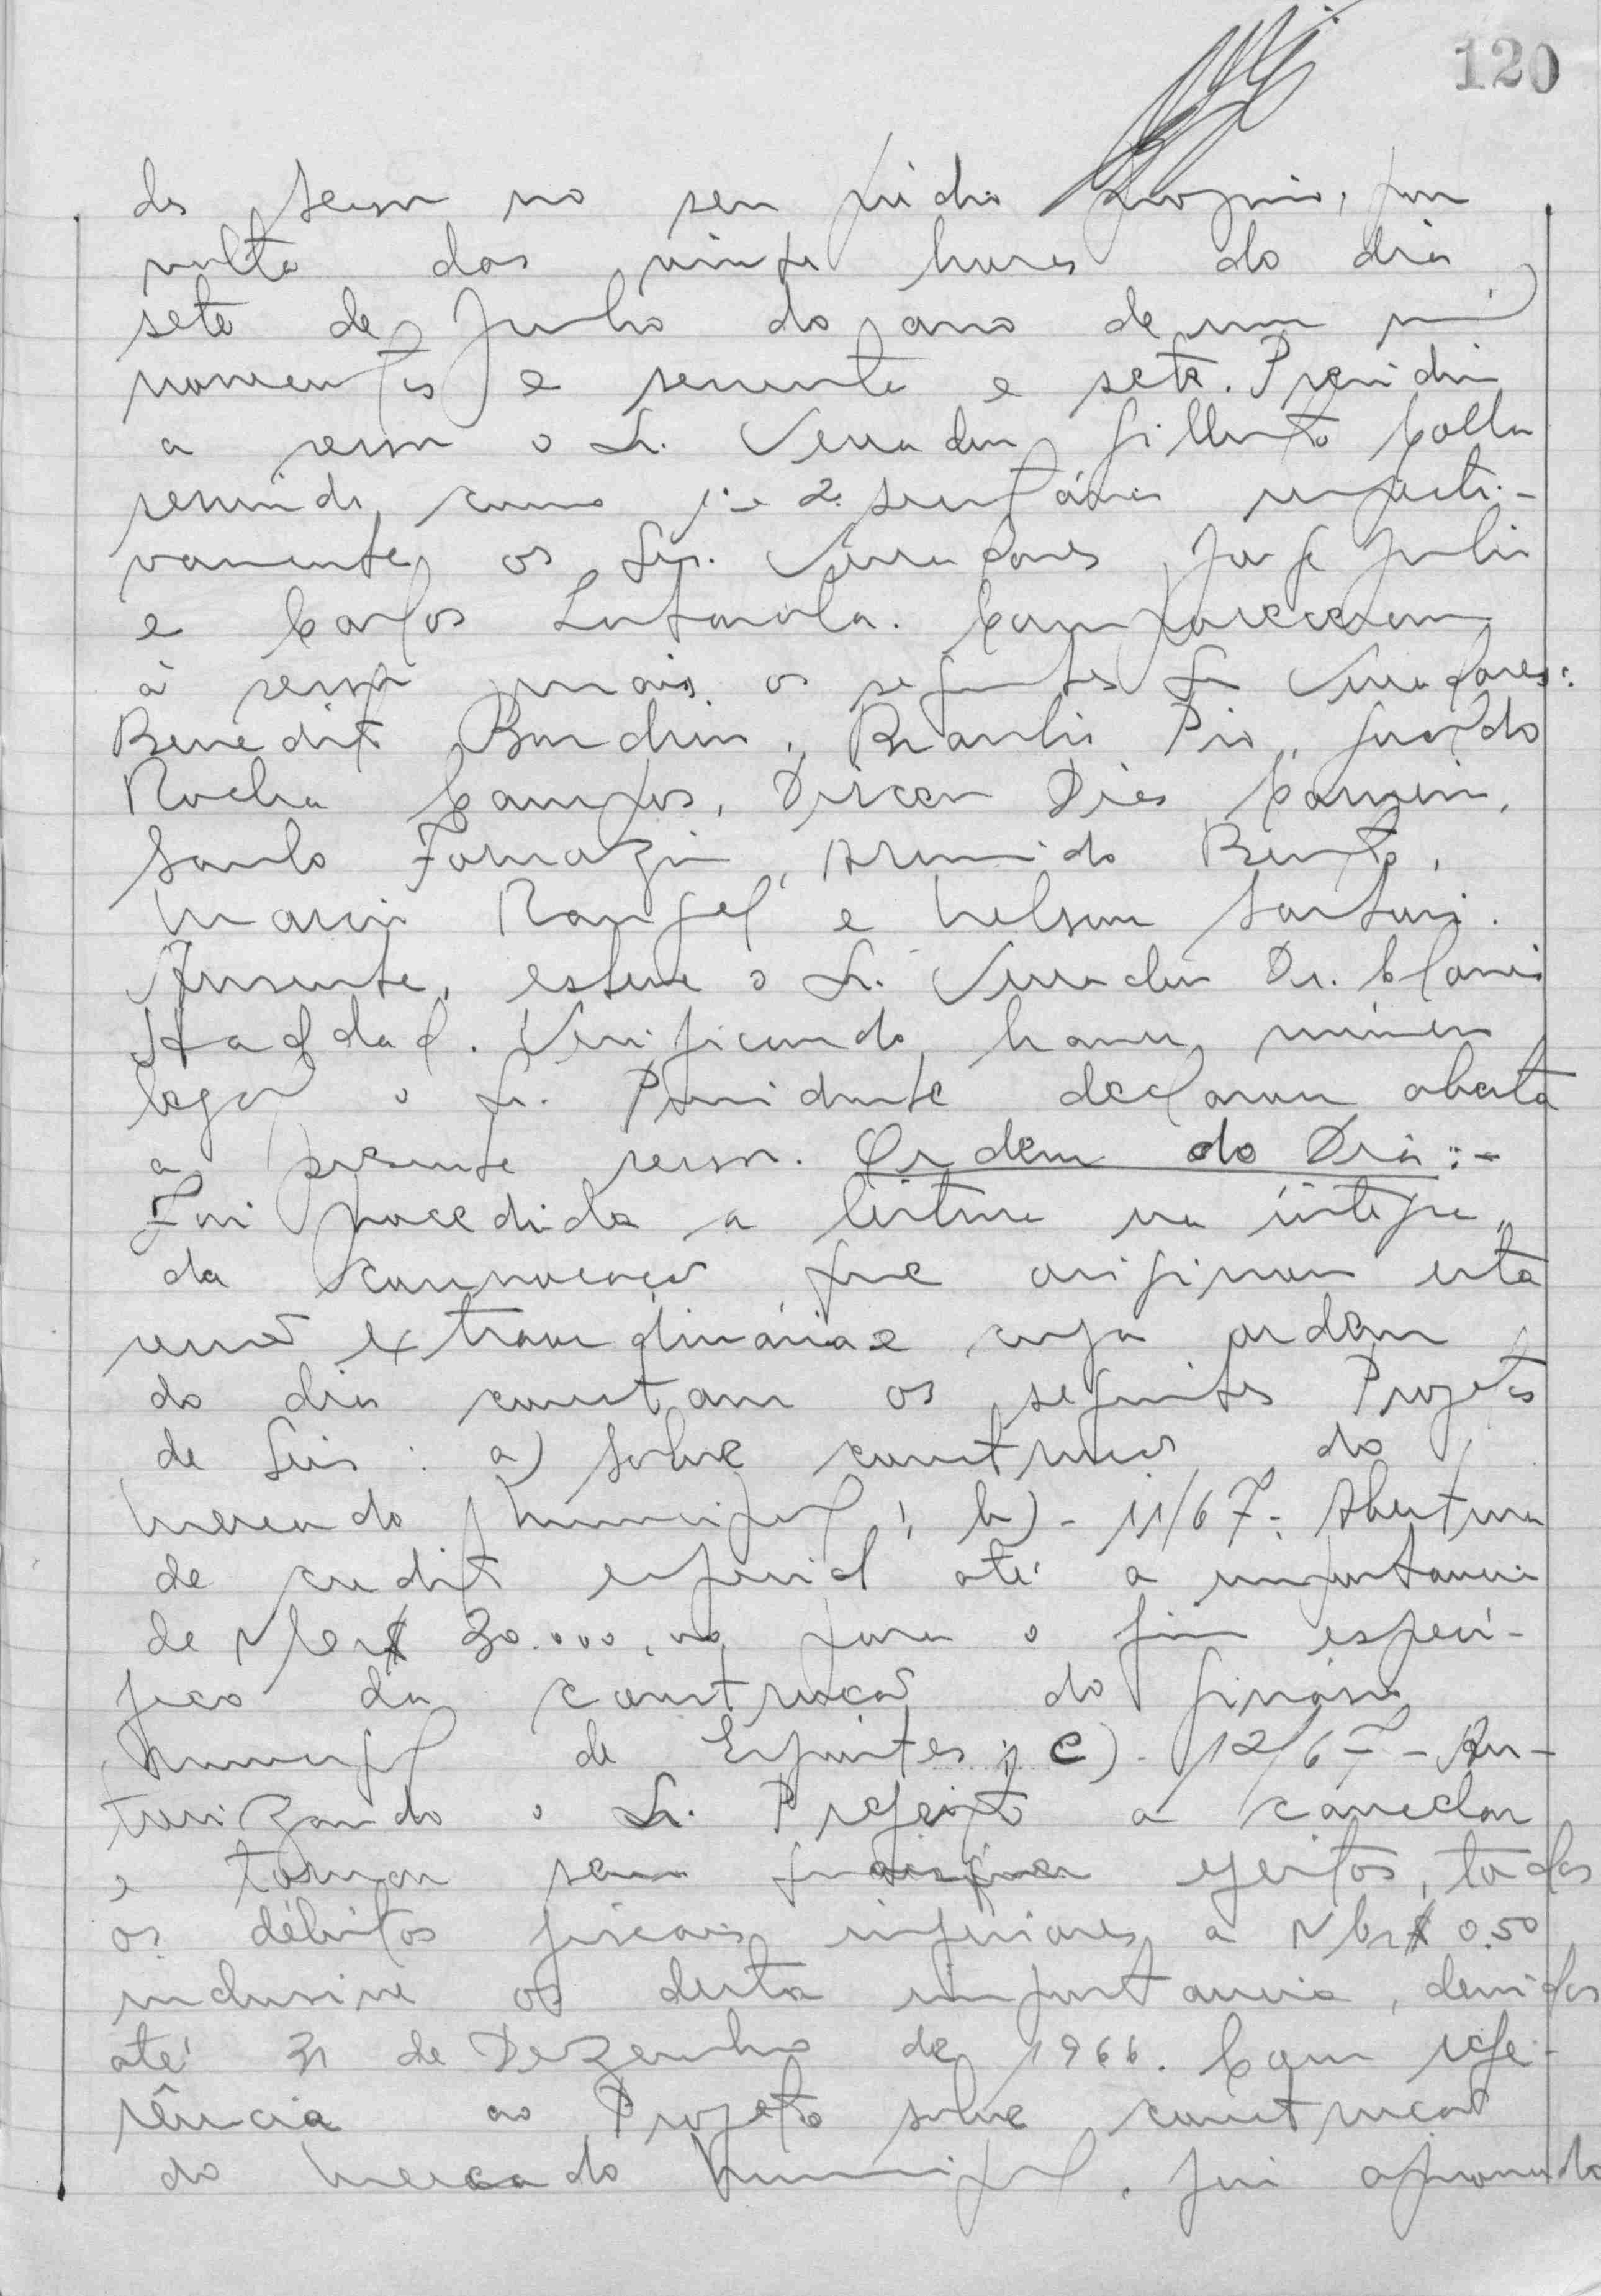 120
da sessão no seu prédio próprio, por
volta das vinte horas do dia
sete de Junho do ano de um mil
novecentos e sessenta e sete. Presidiu
a sessão o Sr. Vereador Gilberto Colla
servindo como 1º e 2º secretários respecti-
vamente, os Srs. Vereadores José Julio
e Carlos. Compareceram
à sessão mais os seguintes Srs Vereadores:
Benedito, Braulio Pio, Geraldo
Rocha Campos, Dirceu Dias Carneiro,
Santo Fornazin, Armindo Bento,
Mario Rangel e Nelson Sartori.
Ausente, esteve o Sr. Vereador Dr. Clanis
Haddad. Verificando haver número
legal o Sr. Presidente declarou aberta
a presente sessão. Ordem do Dia:-
Foi procedida a leitura na íntegra,
da convocação que originou esta
sessão extraordinária e cuja ordem
do dia constam os seguintes Projetos
de Leis: a) sobre construção do
Mercado Municipal; b)- 11/67- Abertura
de credito especial até a importancia
de NCr$ 30.000,00 para o fim especí-
fico da construção do Ginásio
Municipal de Esportes; c)- 12/67- Au-
torizando o Sr. Prefeito a cancelar
e tornar sem quaisquer efeitos, todos
os débitos fiscais inferiores a NCr$ 0,50
inclusive os desta importancia, devidos
até 31 de Dezembro de 1966. Com refe-
rência ao Projeto sobre construção
do Mercado Municipal, foi aprovado